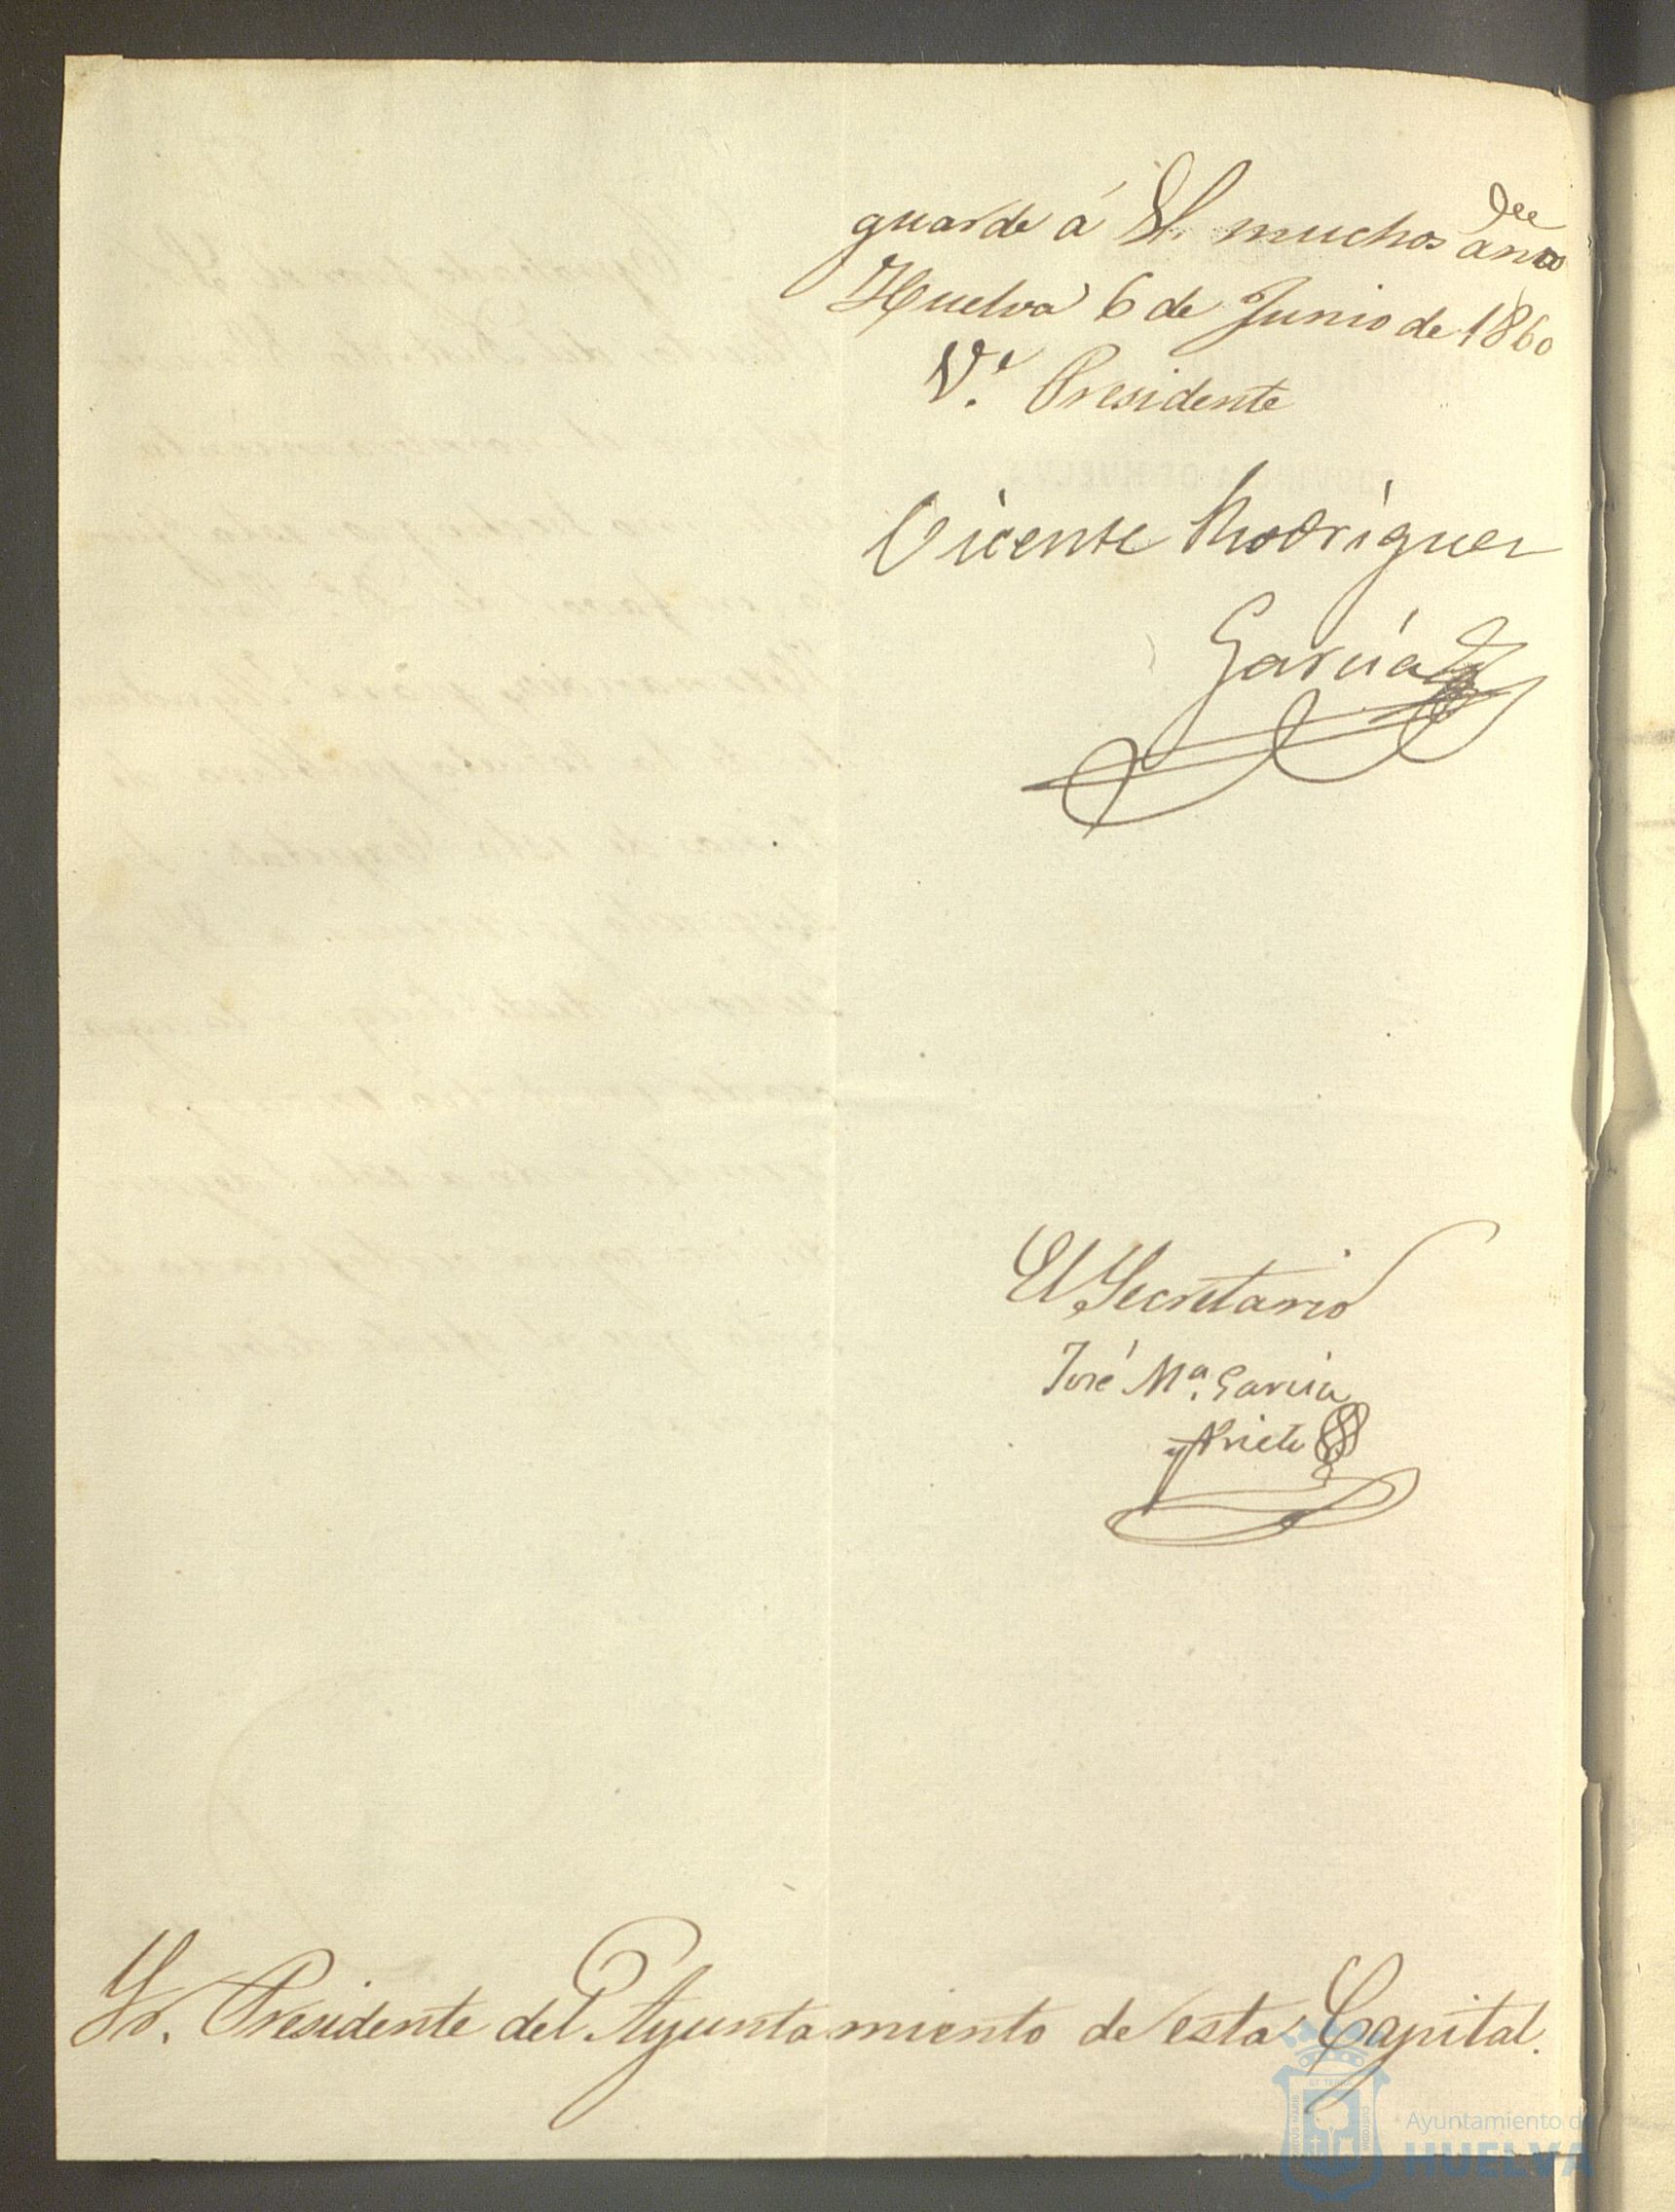 guarde á V. muchos años
Huelva 6 de Junio de 1860
V.e Presidente
Vicente Rodriguez
García
El Secretario
José Mª. García
y Prieto
Sr. Presidente del Ayuntamiento de esta Capital.
Ayuntamiento de
HUELVA